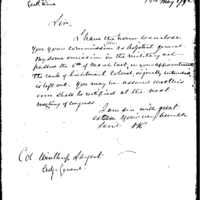 Sir,
I have the honor to enclose
you your commission as Adjutant general
By some omission in the military act
passed the 5th of March last, in your appointment
the rank of Lieutenant Colonel, originally intended,
is left out. You may be assured that this
error shall be rectified at the next
meeting of congress
I am sir with great
esteem your very humble
Servt. HK
Col Winthrop Sargent
Adjt. General